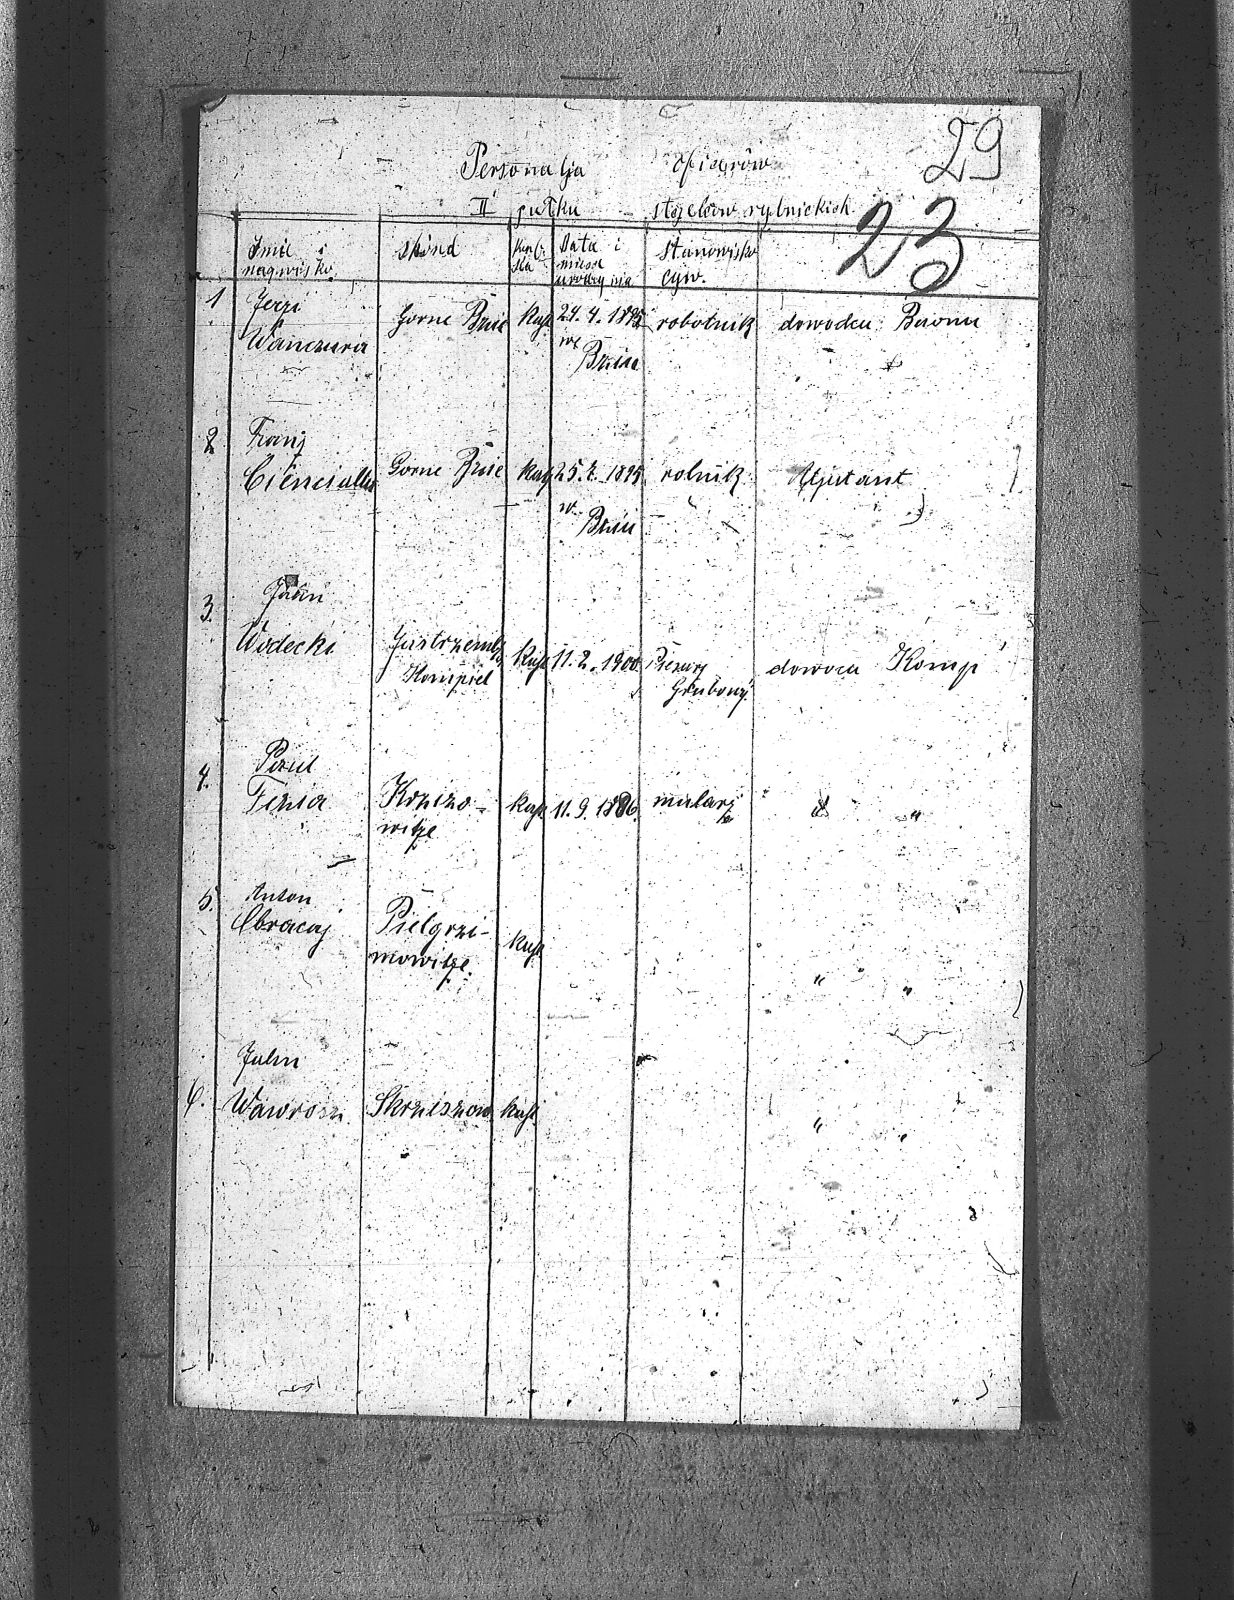 29
Personalja oficerów
II pułku stszelców rybnickich
23
Imie i nazwisko
skąnd
Data i miesc urodzynia
stanowisko cyw.
1 Jerzi Wanczura
Gorne Bzie
Kat
1895
we Bziu
robotnik
dowodca Baonu
2. Franz Ciencialla
Gorne Bzie
Kat
25.2.1895
w. Bziu
rolnik
Atjutant
3. Johan
Wodecki
Jastrzemb
Kompiel
Kat
11.2.1900
Grubowy
dowoca Komp
4. Paul
Krzizo-
witze
Kat
11.9.1886.
malarz
"
5. Anton
Obracaj
Pielgrzi-
mowitze.
Kat
" "
6. Johan
Wawrosz
Skrziszow
Kat
" "